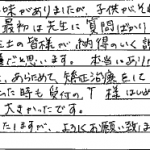 味がありましたが、子供がそ
最初は先生に質問ばかり
士の皆様が納得のいく説
と思います。本当にあり
、あらためて矯正治療をして
した時も受付のT様はじめ
大きかったです。
たしますが、よろしくお願い致しま